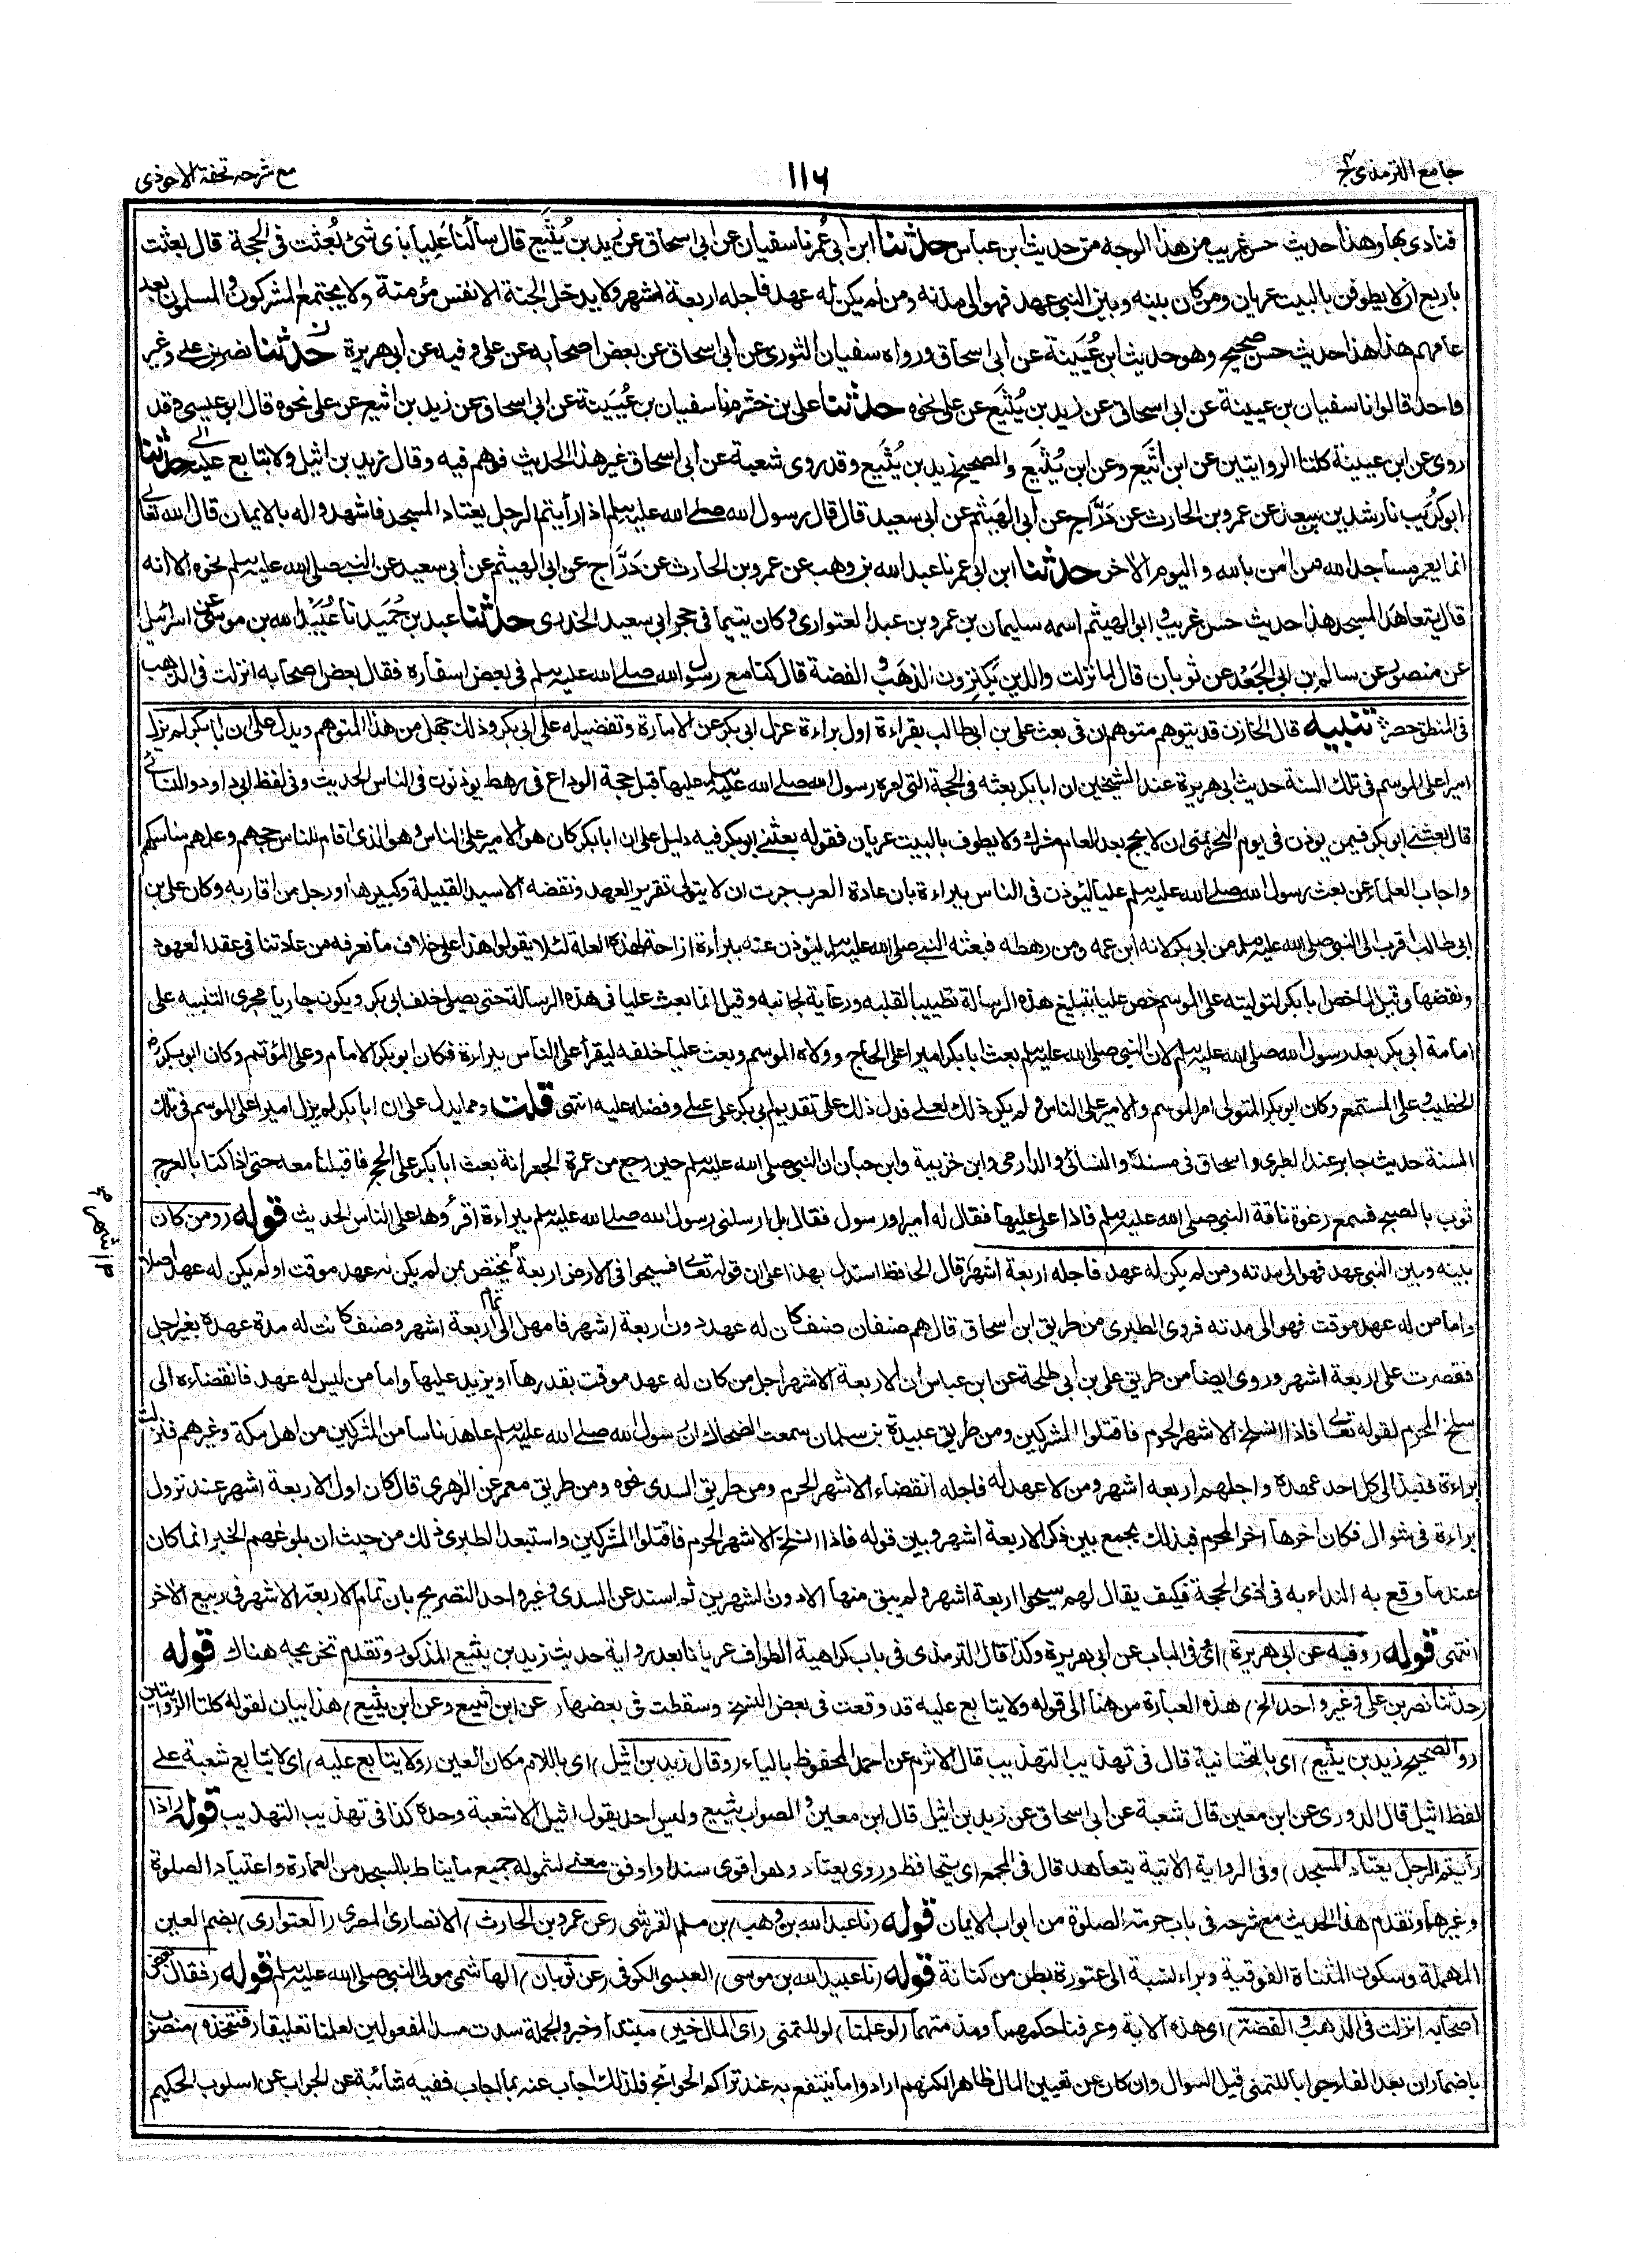 جامع الترمذی ج۴
۱۱۶
مع شرحہ تحفۃ الاحوذی
فنادی بها وهذا حدیث حسن غریب من هذا الوجه من حدیث ابن عباس حدثنا ابن ابی عمر نا سفیان عن ابی اسحاق عن زید بن یُثَیع قال سألنا علیا بای شیٔ بُعثت فی الحجة قال بعثت
باربع ان لا یطوفن بالبیت عریان ومن کان بینه وبین النبی عهد فهو الی مدته ومن لم یکن له عهد فاجله اربعة اشهر ولا یدخل الجنة الا نفس مؤمنة ولا یجتمع المشرکون والمسلمون بعد
عامهم هذا هذا حدیث حسن صحیح وهو حدیث ابن عُیَینة عن ابی اسحاق ورواه سفیان الثوری عن ابی اسحاق عن بعض اصحابه عن علی وفیه عن ابی هریرة حدثنا نصر بن علی وغیر
واحد قالوا نا سفیان بن عیینة عن ابی اسحاق عن زید بن یُثَیع عن علی نحوه حدثنا علی بن خشرم نا سفیان بن عُیَینة عن ابی اسحاق عن زید بن اثیع عن علی نحوه قال ابو عیسی وقد
روی عن ابن عیینة کلتا الروایتین عن ابن اثیع وعن ابن یُثَیع والصحیح زید بن یُثَیع وقد روی شعبة عن ابی اسحاق غیر هذا الحدیث فوهم فیه وقال زید بن اثیل ولا یتابع علیه حدثنا
ابو کُرَیب نا رشدین بن سعد عن عمرو بن الحارث عن دَرَّاج عن ابی الهَیثم عن ابی سعید قال قال رسول الله صلی الله علیه وسلم اذا رأیتم الرجل یعتاد المسجد فاشهدوا له بالایمان قال الله تعالی
انما یعمر مساجد الله من اٰمن بالله والیوم الاٰخر حدثنا ابن ابی عمر نا عبد الله بن وهب عن عمرو بن الحارث عن دَرَّاج عن ابی الهیثم عن ابی سعید عن النبی صلی الله علیه وسلم نحوه الا انه
قال یتعاهد المسجد هذا حدیث حسن غریب وابو الهیثم اسمه سلیمان بن عمرو بن عبد العتواری وکان یتیما فی حجر ابی سعید الخدری حدثنا عبد بن حُمَید نا عُبَیْد الله بن موسی عن اسرائیل
عن منصور عن سالم بن ابی الجَعْد عن ثوبان قال لما نزلت والذین یکنزون الذهَب والفضة قال کنا مع رسول الله صلی الله علیه وسلم فی بعض اسفاره فقال بعض اصحابه انزلت فی الذهب
تنبیه قال الخازن قد یتوهم متوهم ان فی بعث علی بن ابی طالب بقراءة اول براءة عزل ابی بکر عن الامارة وتفضیله علی ابی بکر وذلك جهل من هذا المتوهم ویدل علی ان ابا بکر لم یزل
امیرا علی الموسم فی تلك السنة حدیث ابی هریرة عند الشیخین ان ابا بکر بعثه فی الحجة التی امره رسول الله صلی الله علیه وسلم علیها قبل حجة الوداع فی رهط یؤذنون فی الناس الحدیث وفی لفظ ابی داود والنسائی
قال بعثنی ابو بکر فیمن یؤذن فی یوم النحر بمنی ان لا یحج بعد العام مشرك ولا یطوف بالبیت عریان فقوله بعثنی ابو بکر فیه دلیل علی ان ابا بکر کان هو الامیر علی الناس وهو الذی اقام للناس حجهم وعلمهم مناسکهم
واجاب العلماء عن بعث رسول الله صلی الله علیه وسلم علیا لیؤذن فی الناس ببراءة بان عادة العرب جرت ان لا یتولی تقریر العهد ونقضه الا سید القبیلة وکبیرها او رجل من اقاربه وکان علی بن
ابی طالب اقرب الی النبی صلی الله علیه وسلم من ابی بکر لانه ابن عمه ومن رهطه فبعثه النبی صلی الله علیه وسلم لیؤذن عنه ببراءة ازاحة لهذه العلة لئلا یقولوا هذا علی خلاف ما نعرفه من عادتنا فی عقد العهود
ونقضها وقیل لما خص ابا بکر لتولیته علی الموسم خص علیا بتبلیغ هذه الرسالة تطییبا لقلبه ورعایة لجانبه وقیل انما بعث علیا فی هذه الرسالة حتی یصلی خلف ابی بکر ویکون جاریا مجری التنبیه علی
امامة ابی بکر بعد رسول الله صلی الله علیه وسلم لان النبی صلی الله علیه وسلم بعث ابا بکر امیرا علی الحاج وولاه الموسم وبعث علیا خلفه لیقرأ علی الناس ببراءة فکان ابو بکر الامام وعلی المؤتم وکان ابو بکر
الخطیب وعلی المستمع وکان ابو بکر المتولی امر الموسم والامیر علی الناس ولم یکن ذلك لعلی فدل ذلك علی تقدیم ابی بکر علی علی وفضله علیه انتهی قلت ومما یدل علی ان ابا بکر لم یزل امیرا علی الموسم فی تلك
السنة حدیث جابر عند الطبری واسحاق فی مسنده والنسائی والدارمی وابن خزیمة وابن حبان ان النبی صلی الله علیه وسلم حین رجع من عمرة الجعرانة بعث ابا بکر علی الحج فاقبلنا معه حتی اذا کنا بالعرج
ثوب بالصبح فسمع رغوة ناقة النبی صلی الله علیه وسلم فاذا علی علیها فقال له امیر او رسول فقال بل ارسلنی رسول الله صلی الله علیه وسلم ببراءة اقرؤها علی الناس الحدیث قوله (ومن کان
بینه وبین النبی عهد فهو الی مدته ومن لم یکن له عهد فاجله اربعة اشهر) قال الحافظ استدل بهذا علی ان قوله تعالی فسیحوا فی الارض اربعة یختص بمن لم یکن له عهد موقت او لم یکن له عهد اصلا
واما من له عهد موقت فهو الی مدته فروی الطبری من طریق ابن اسحاق قال هم صنفان صنف کان له عهد دون اربعة اشهر فامهل الی تمام اربعة اشهر وصنف کانت له مدة عهده بغیر اجل
فقصرت علی اربعة اشهر وروی ایضا من طریق علی بن ابی طلحة عن ابن عباس ان الاربعة الاشهر اجل من کان له عهد موقت بقدرها او یزید علیها واما من لیس له عهد فانقضاءه الی
سلخ المحرم لقوله تعالی فاذا انسلخ الاشهر الحرم فاقتلوا المشرکین ومن طریق عبیدة بن سلمان سمعت الضحاك ان رسول الله صلی الله علیه وسلم عاهد ناسا من المشرکین من اهل مکة وغیرهم فنزلت
براءة فنبذ الی کل احد عهده واجلهم اربعة اشهر ومن لا عهد له فاجله انقضاء الاشهر الحرم ومن طریق السدی نحوه ومن طریق معمر عن الزهری قال کان اول الاربعة اشهر عند نزول
براءة فی شوال فکان اخرها اخر المحرم فبذلك یجمع بین ذکر الاربعة اشهر وبین قوله فاذا انسلخ الاشهر الحرم فاقتلوا المشرکین واستبعد الطبری ذلك من حیث ان بلوغهم الخبر انما کان
عند ما وقع به النداء به فی ذی الحجة فکیف یقال لهم سیحوا اربعة اشهر ولم یبق منها الا دون الشهرین ثم اسند عن السدی وغیر واحد التصریح بان تمام الاربعة الاشهر فی ربیع الاٰخر
انتهی قوله (وفیه عن ابی هریرة) ای فی الباب عن ابی هریرة وکذا قال الترمذی فی باب کراهیة الطواف عریانا بعد روایة حدیث زید بن یثیع المذکور وتقدم تخریجه هناك قوله
(حدثنا نصر بن علی وغیر واحد الخ) هذه العبارة من هنا الی قوله ولا یتابع علیه قد وقعت فی بعض النسخ وسقطت فی بعضها (عن ابن اثیع وعن ابن یثیع) هذا بیان لقوله کلتا الروایتین
(والصحیح زید بن یثیع) ای بالتحتانیة قال فی تهذیب التهذیب قال الاثرم عن احمد المحفوظ بالیاء (وقال زید بن اثیل) ای باللام مکان العین (ولا یتابع علیه) ای لا یتابع شعبة علی
لفظ اثیل قال الدوری عن ابن معین قال شعبة عن ابی اسحاق عن زید بن اثیل قال ابن معین والصواب یثیع ولیس احد یقول اثیل الا شعبة وحده کذا فی تهذیب التهذیب قوله (اذا
رأیتم الرجل یعتاد المسجد) وفی الروایة الاتیة یتعاهد قال فی المجمع ای یتحافظ وروی یعتاد وهو اقوی سندا واوفق معنی لشموله جمیع ما یناط بالمسجد من العمارة واعتیاد الصلوة
وغیرها وتقدم هذا الحدیث مع شرحه فی باب حرمة الصلوة من ابواب الایمان قوله (نا عبد الله بن وهب) بن مسلم القرشی (عن عمرو بن الحارث) الانصاری المصری (العتواری) بضم العین
المهملة وسکون المثناة الفوقیة وبراء نسبة الی عتوارة بطن من کنانة قوله (نا عبید الله بن موسی) العبسی الکوفی (عن ثوبان) الهاشمی مولی النبی صلی الله علیه وسلم قوله (فقال بعض
اصحابه انزلت فی الذهب والفضة) ای هذه الاٰیة وعرفنا حکمهما ومذمتهما (لو علمنا) لو للتمنی (ای المال خیر) مبتدأ وخبر والجملة سدت مسد المفعولین لعلمنا تعلیقا (فنتخذه) منصوب
باضمار ان بعد الفاء جوابا للتمنی قیل السوال وان کان عن تعیین المال ظاهرا لکنهم ارادوا ما ینتفع به عند تراکم الحوائج فلذلك اجاب عنه بما اجاب ففیه شائبة عن الجواب عن اسلوب الحکیم